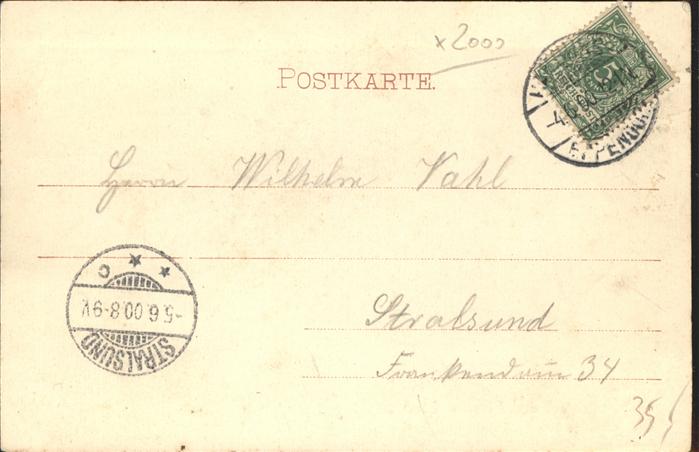 x 2000
POSTKARTE.
5
EPPENDORF
Herrn Wilhelm Vahl
Stralsund
Frankendamm 34
STRALSUND
-5.6.00.8-9V.
* * c
35